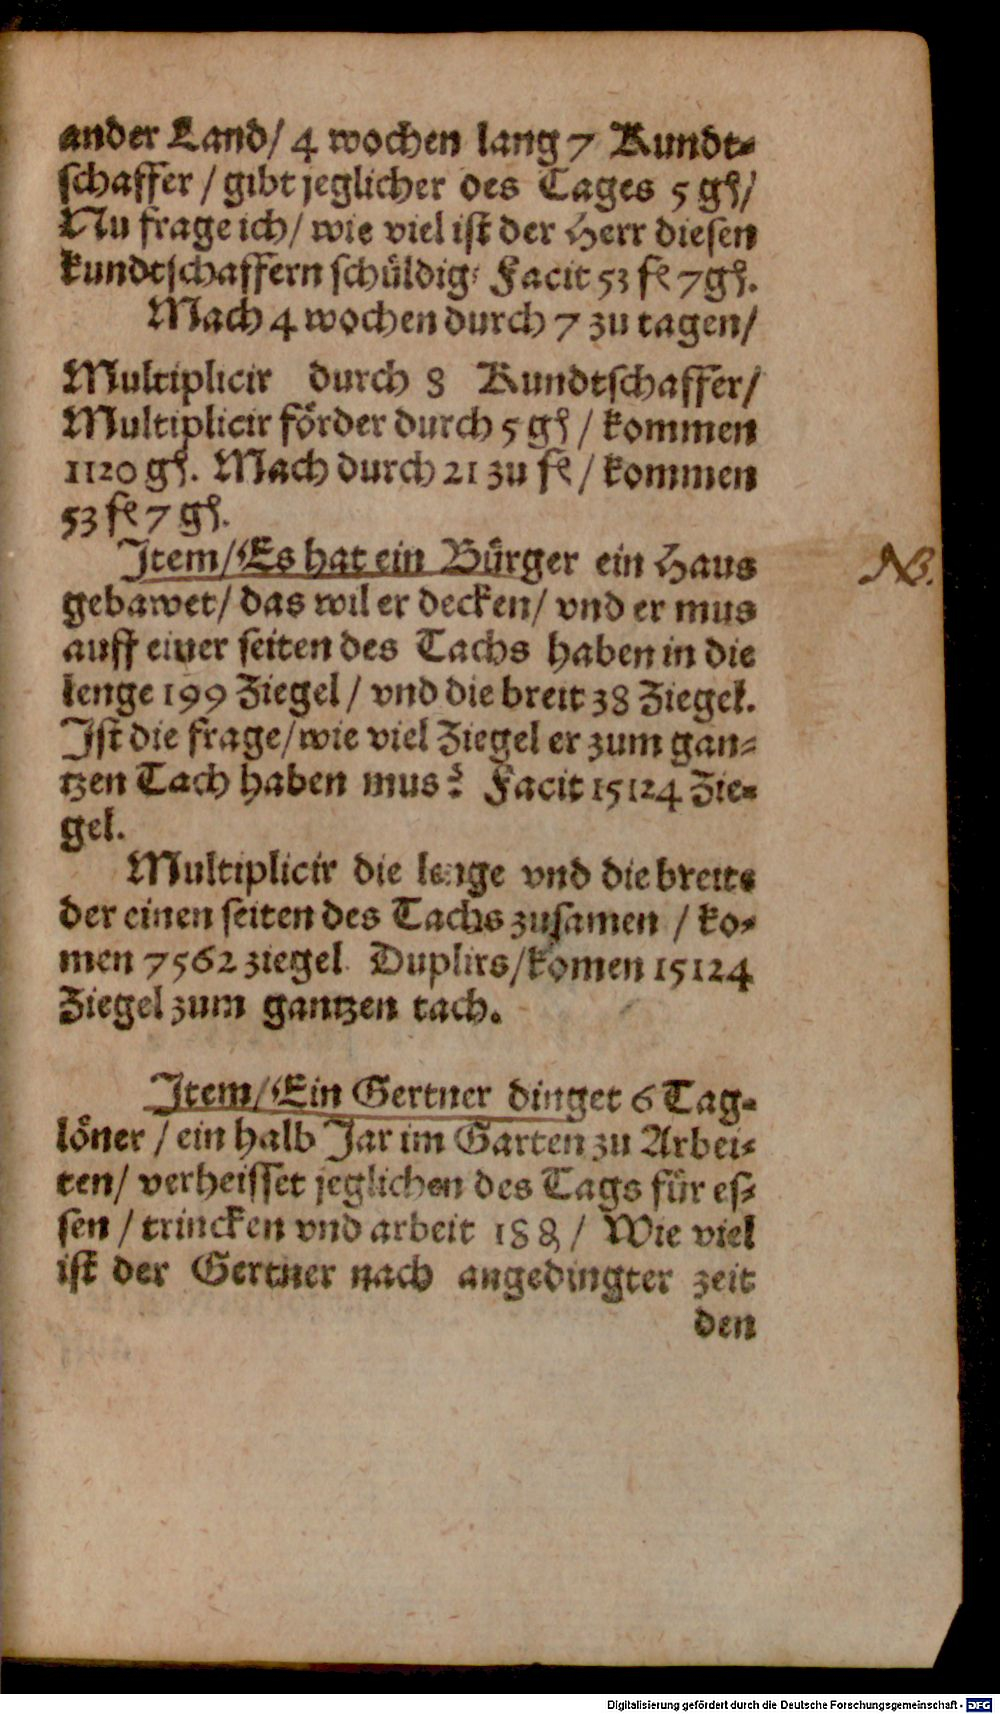 ander Land/ 4 wochen lang 7 Kundt⸗
schaffer / gibt jeglicher des Tages 5 gſ/
Nu frage ich/ wie viel ist der Herr diesen
kundtschaffern schüldig: Facit 53 fl 7gſ.
Mach 4 wochen durch 7 zu tagen/
Multiplicir durch 8 Kundtschaffer/
Multiplicir förder durch 5 gſ / kommen
1120 gſ. Mach durch 21 zu fl / kommen
53 fl 7 gſ.
Item/ Es hat ein Bürger ein Haus
NB.
gebawet/ das wil er decken/ vnd er mus
auff einer seiten des Tachs haben in die
lenge 199 Ziegel / vnd die breit 38 Ziegel.
Ist die frage/wie viel Ziegel er zum gan⸗
tzen Tach haben mus? Facit 15124 Zie⸗
gel.
Multiplicir die lenge vnd die breite
der einen seiten des Tachs zusamen / ko⸗
men 7562 ziegel. Duplirs/komen 15124
Ziegel zum gantzen tach.
Item/ Ein Gertner dinget 6 Tag⸗
löner / ein halb Jar im Garten zu Arbei⸗
ten/ verheisset jeglichen des Tags für es⸗
sen / trincken vnd arbeit 18 ₰ / Wie viel
ist der Gertner nach angedingter zeit
den
Digitalisierung gefördert durch die Deutsche Forschungsgemeinschaft - DFG